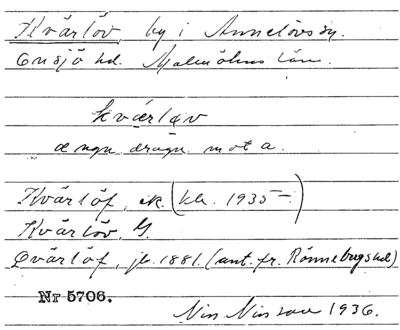 Kvärlöv, by i Annelövs sn.
Onsjö hd. Malmöhus län.
kværləv
æ ngn. dragn. mot a.
Kvärlöf, ek. (kla. 1935-)
Kvärlöv, G.
Qvärlöf, jb. 1881. (ant. fr. Rönnebergs hd)
Nr 5706.
Nils Nilsson 1936.